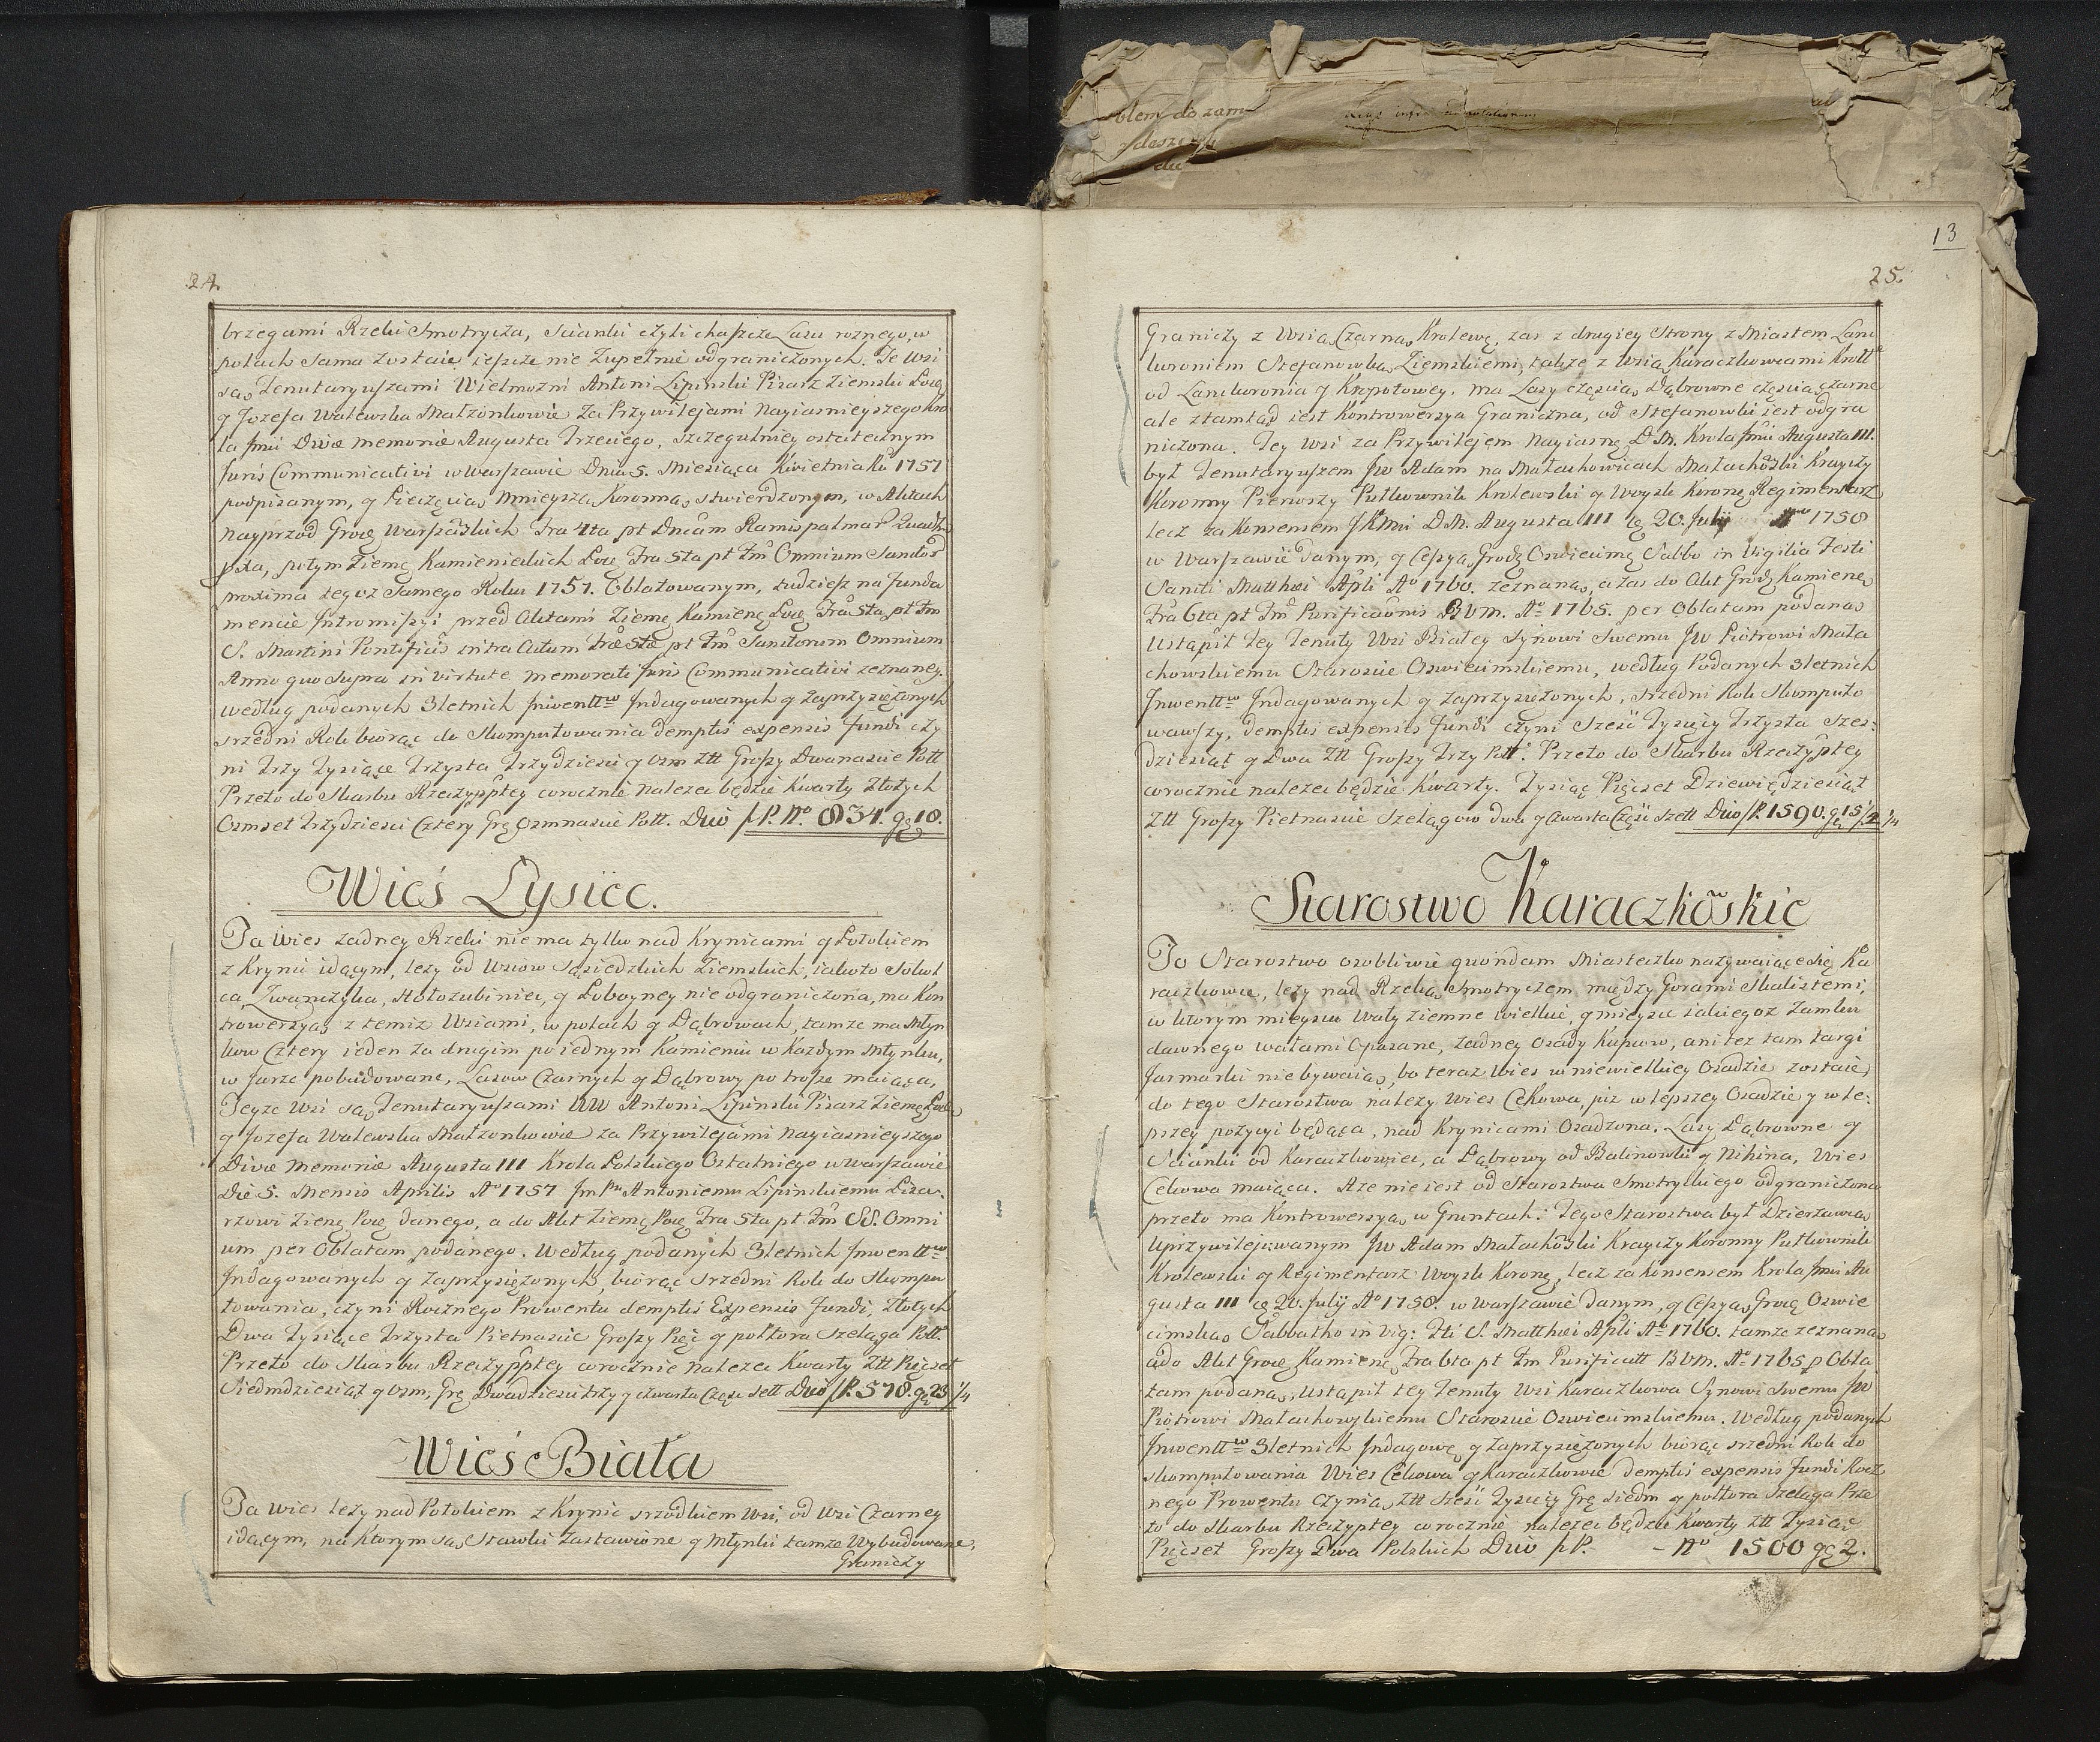 24.
brzegami Rzeki Smotrycza, Scianki czyli chaszcze Lasu roznego, w
polach Sama zostaie ieszcze nie zupełnie odgraniczonych. Te Wsi
są Tenutaryuszami Wielmozni Antoni Lipinski Pisarz Ziemski Pod:
y Jozefa Walewska Małzonkowie za Przywilejami Nayiasnieyszego Kro
la Jmci Divæ memoriæ Augusta Trzeciego, szczegulniey ostatecznym
Juris Communicativi w Warszawie Dnia 5. Miesiąca Kwietnia Ru 1757
podpisanym, y Pieczęcią Mnieyszą Koronną stwierdzonym, w Aktach
nayprzod Grodz Warszaskich Fria 4ta pt Dncam Ramispalmar
potym Ziemę Kamienieckich Fria 5ta pt Fm Omnium Sanctor
proxima tegoz Samego Roku 1757. Oblatowanym, tudziesz na funda
mencie Intromissyi przed Aktami Ziemę Kamienę Fria 5ta pt Fm
S. Martini Pontificis intra Actum Friæ 5tæ pt Fm Sanctorum Omnium
Anno quo Supra in Virtute memorati Juris Communicativi zeznaney.
według podanych 3letnich Jnwentt Jndagowanych y zaprzysiężonych
srzedni Rok biorąc do Skomputowania demptis expensis fundi czy
ni Trzy Tysiące Trzysta Trzydziesci y osm Ztt Groszy Dwanascie Poll
Przeto do Skarbu Rzeczyppltey corocznie nalezec będzie Kwarty Złotych
Osmset Trzydziesci Cztery Grę Osmnascie Poll. Duo fl P. No 834. gę 18.
Wieś Łysiec.
Ta Wies zadney Rzeki nie ma tylko nad Krynicami y Potokiem
z Krynic idącym, lezy od Wsiow Sąsiedzkich Ziemskich, iakoto Sokoł
ca, Zwanczyka, Hołozubiniec, y Łoboyney nie odgraniczona, ma Kon
trowersyą z temiz Wsiami, w polach y Dąbrowach, tamze ma Młyn
kow Cztery ieden za drugim po iednym Kamieniu w Kazdym Młynku,
w Jarze pobudowane, Lasow Czarnych y Dąbrowy po trosze maiąca,
Teyze Wsi są Tenutaryuszami WW Antoni Lipinski Pisarz Ziemę
y Jozefa Walewska Małzonkowie za Przywilejami Nayiasnieyszego
Divæ Memoriæ Augusta III Krola Polskiego Ostatniego w Warszawie
Die 5. Mensis Aprilis Ao 1757 Jm Pn Antoniemu Lipinskiemu Pisa-
rzowi Ziemę danego, a do Akt Ziemę Fria 5ta pt Fm SS. Omni
um per Oblatam podanego. Według podanych 3letnich Jnwentt
Jndagowanych y Zaprzysiężonych, biorąc srzedni Rok do Skompu
towania, czyni Rocznego Prowentu demptis Expensis Fundi, Złotych
Dwa Tysiące Trzysta Pietnascie Groszy Pięć y połtora Szeląga Poll.
Przeto do Skarbu Rzeczyppltey corocznie nalezec Kwarty Ztt Pięcset
Siedmdziesiąt y Osm, Grę Dwadziescia trzy y czwarta Częsc Szll Duo fl P. 578. gę 23 1/4
Wieś Biała
Ta Wies lezy nad Potokiem z Krynic srzodkiem Wsi, od Wsi Czarney
idącym, na Ktorym są Stawki Zastawione y Młynki tamze Wybudowane,
Graniczy
13
25.
Graniczy z Wsią Czarną Krolewę, zas z drugiey Strony z Miastem Lanc
koroniem Stefanowką Ziemskiemi, takze z Wsią Karaczkowcami Kroll
od Lanckoronia y Kropotowey. ma Lasy częscią Dąbrowne częscią czarne
ale ztamtąd iest Kontrowersya Graniczna, od Stefanowki iest odgra
niczona. Tey Wsi za Przywilejem Nayiasnę D.M. Krola Jmci Augusta III.
był Tenutaryuszem Jw Adam na Małachowicach Małachoski Krayczy
Koronny Pierwszy Putkownik Krolewski y Woysk Koronę Regimentarz
lecz za Konsensem J Kmci D.M. Augusta III 20. Julij Ao 1758
w Warszawie danym, y Cessyą Grodz Oswiecimę Sabbo in Vigilia Festi
Sancti Matthæi Apli Ao 1760. zeznaną, a zas do Akt Grodz Kamienę
Fria 6ta pt Fm Purificaonis B.V.M. Ao 1765. per Oblatam podaną
Ustąpił tey Tenuty Wsi Białey Synowi Swemu Jw Piotrowi Mała
chowskiemu Staroscie Oswiecimskiemu, według Podanych 3letnich
Jnwentt Jndagowanych y zaprzysiężonych, srzedni Rok Skomputo
wawszy, demptis expensis fundi czyni Sześć Tysięcy Trzysta Szes:
dziesiąt y Dwa Ztt Groszy Trzy Poll. Przeto do Skarbu Rzeczypltey
corocznie nalezec będzie Kwarty. Tysiąc Pięcset Dziewiędziesiąt
Ztt Groszy Pietnascie Szelągow dwa y czwarta Częsc Szell Duo fl P. 1590. gę 15 /2 1/4
Starostwo Karaczkoskie
To Starostwo osobliwie quondam Miasteczko nazywaiące się Ka
raczkowce, lezy nad Rzeką Smotryczem między Gorami Skalistemi,
w ktorym mieyscu Wały ziemne wielkie, y mieysce iakiegoz Zamku
dawnego wałami Opasane, zadney Osady Kupcow, ani tez tam targi
Jarmarki nie bywaią, bo teraz Wies w niewielkiey Osadzie zostaie,
do tego Starostwa nalezy Wies Cekowa, juz w lepszey Osadzie y w le:
pszey pozycyi będąca, nad Krynicami Osadzona. Lasy Dąbrowne y
Scianki od Karaczkowiec, a Dąbrowy od Balinowki y Nihina, Wies
Cekowa maiąca. A ze nie iest od Starostwa Smotryckiego odgraniczona
przeto ma Kontrowersyą w Gruntach. Tego Starostwa był Dzierzawcą
Uprzywilejowanym Jw Adam Małachoski Krayczy Koronny Putkownik
Krolewski y Regimentarz Woysk Koronę, lecz za Konsensem Krola Jmci Au
gusta III 20. Julij Ao 1758. w Warszawie danym, y Cessyą Grodę Oswie
cimską Sabbatho in Vig: Fti S. Matthæi Apli Ao 1760. tamze zeznaną
a do Akt Grodę Kamienę Fria 6ta pt Fm Purificatt B.V.M. Ao 1765 p Obla
tam podaną, ustąpił tey Tenuty Wsi Karaczkowa Synowi Swemu Jw
Piotrowi Małachowskiemu Staroscie Oswiecimskiemu. Według podanych
Jnwentt 3letnich Jndagowę y zaprzysiężonych biorąc srzedni Rok do
skomputowania Wies Cekowa y Karaczkowce demptis expensis Fundi Rocz
nego Prowentu czynią Ztt Sześć Tysięcy Grę siedm y połtora Szeląga Prze
to do Skarbu Rzeczypltey corocznie nalezec będzie Kwarty Ztt Tysiąc
Pięcset Groszy Dwa Polskich Duo fl P. - No 1500 gę 2.